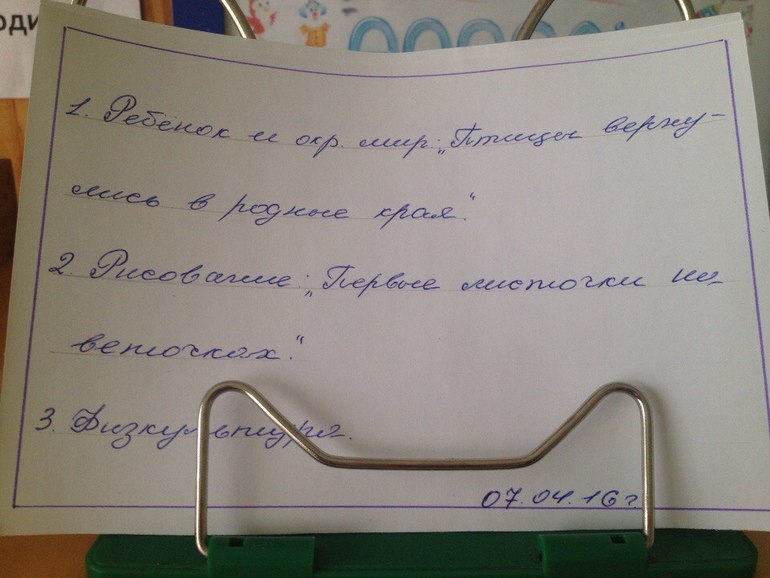 оди
1. Ребёнок и окр. мир: „Птицы верну-
лись в родные края“.
2. Рисование: „Первые листочки на
веточках“.
3. Физкультура.
07.04.16г.